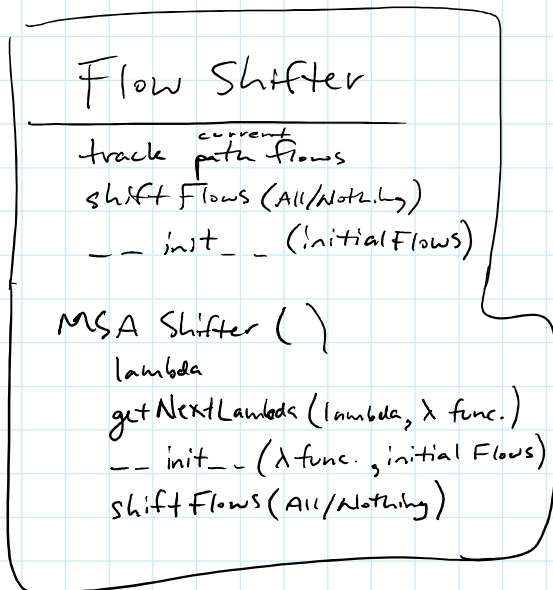 Flow Shifter
current
track path flows
shift Flows (All/Nothing)
__ init__ (initial Flows)
MSA Shifter ( )
lambda
getNextLambda (lambda, λ func.)
__ init__ (λ func., initial Flows)
shift Flows (All/Nothing)